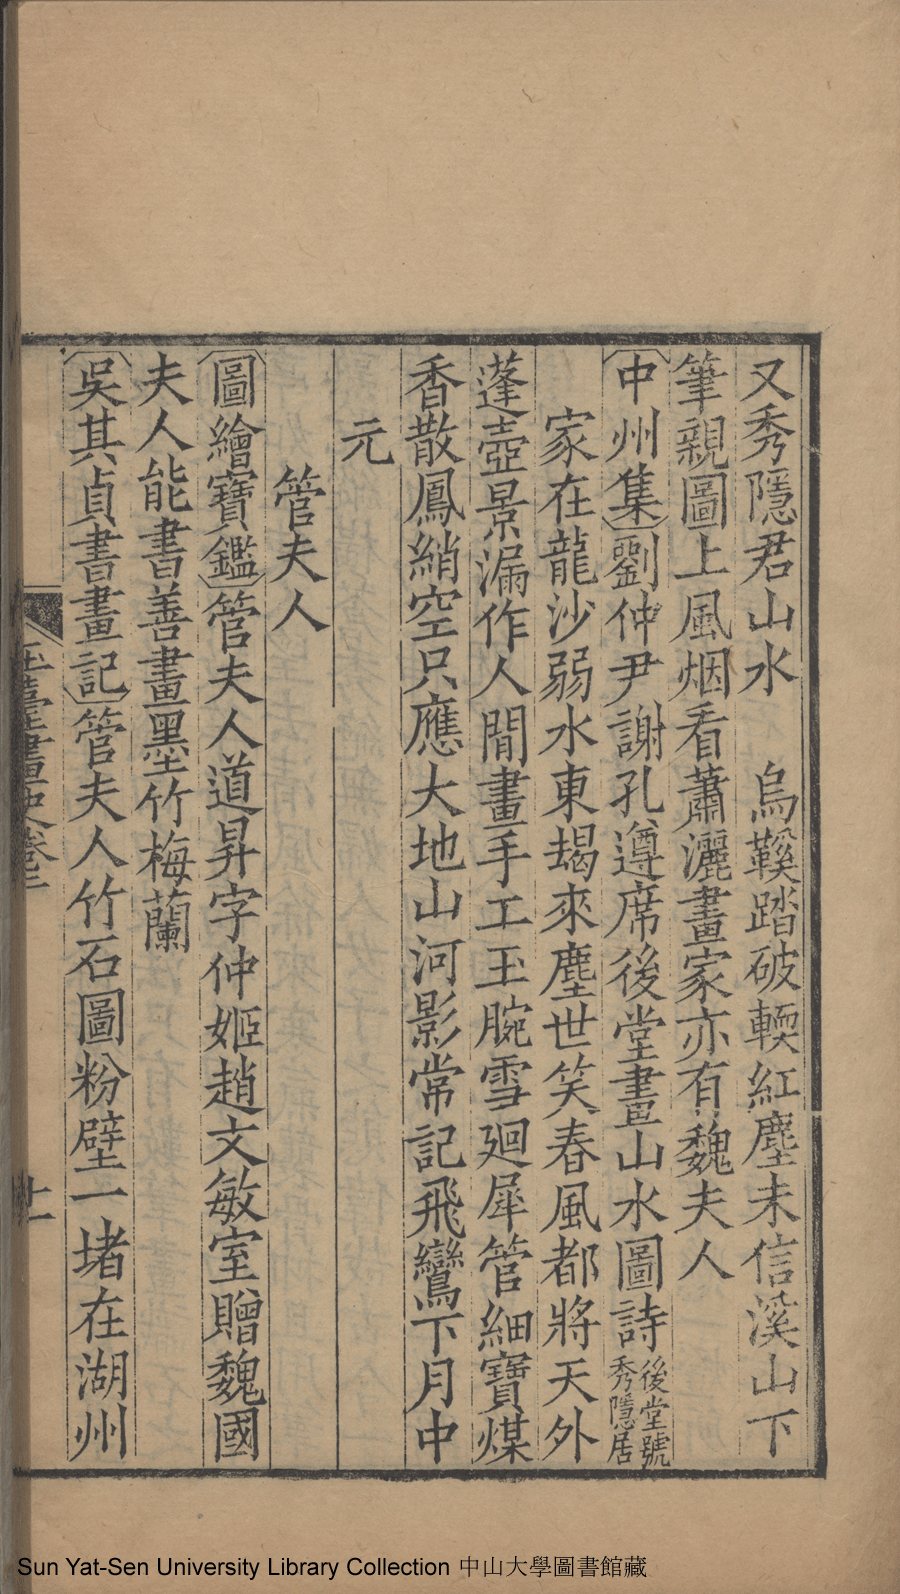 又秀隱君山水　烏鞵踏破輭紅塵未信溪山下
筆親圖上風烟看蕭灑畫家亦有魏夫人
〔中州集〕劉仲尹謝孔遵席後堂畫山水圖詩後堂號秀隱居
家在龍沙弱水東朅來塵世笑春風都將天外
蓬壺景漏作人間畫手工玉腕雪廻犀管細寶煤
香散鳳綃空只應大地山河影常記飛鸞下月中
元
管夫人
〔圖繪寶鑑〕管夫人道昇字仲姬趙文敏室贈魏國
夫人能書善畫墨竹梅蘭
〔吳其貞書畫記〕管夫人竹石圖粉壁一堵在湖州
玉臺畫史卷三
十一
Sun Yat-Sen University Library Collection 中山大學圖書館藏